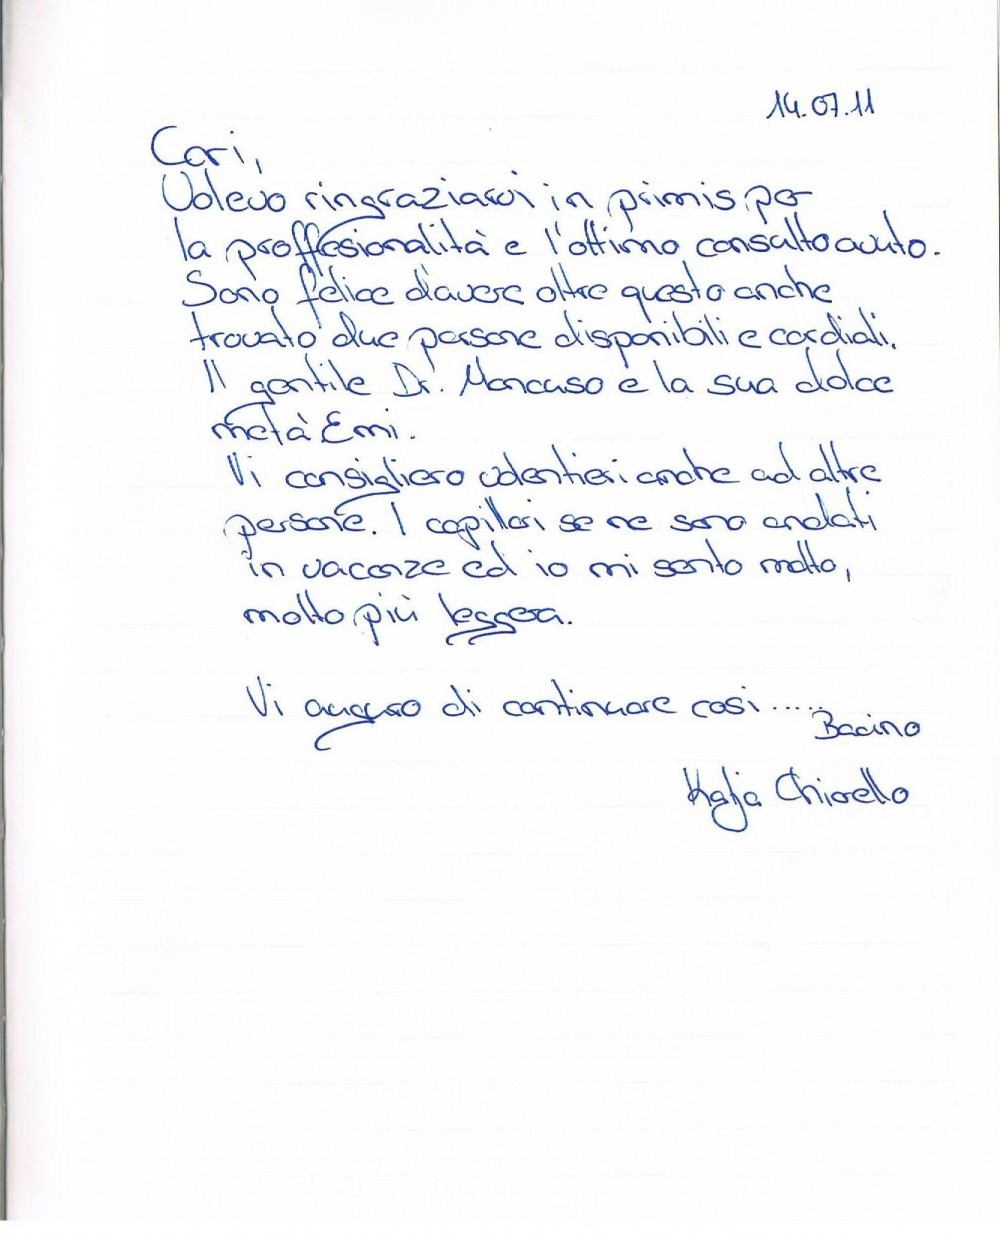 14.07.11
Cari,
Volevo ringraziarvi in primis per
la proffesionalità e l'ottimo consulto avuto.
Sono felice d'avere oltre questo anche
trovato due persone disponibili e cordiali.
Il gentile Dr. Mancuso e la sua dolce
metà Emi.
Vi consigliero volentieri anche ad altre
persone. I capillari se ne sono andati
in vacanze ed io mi sento molto,
molto più leggera.
Vi auguro di continuare cosi .....
Bacino
Katja Chiarello